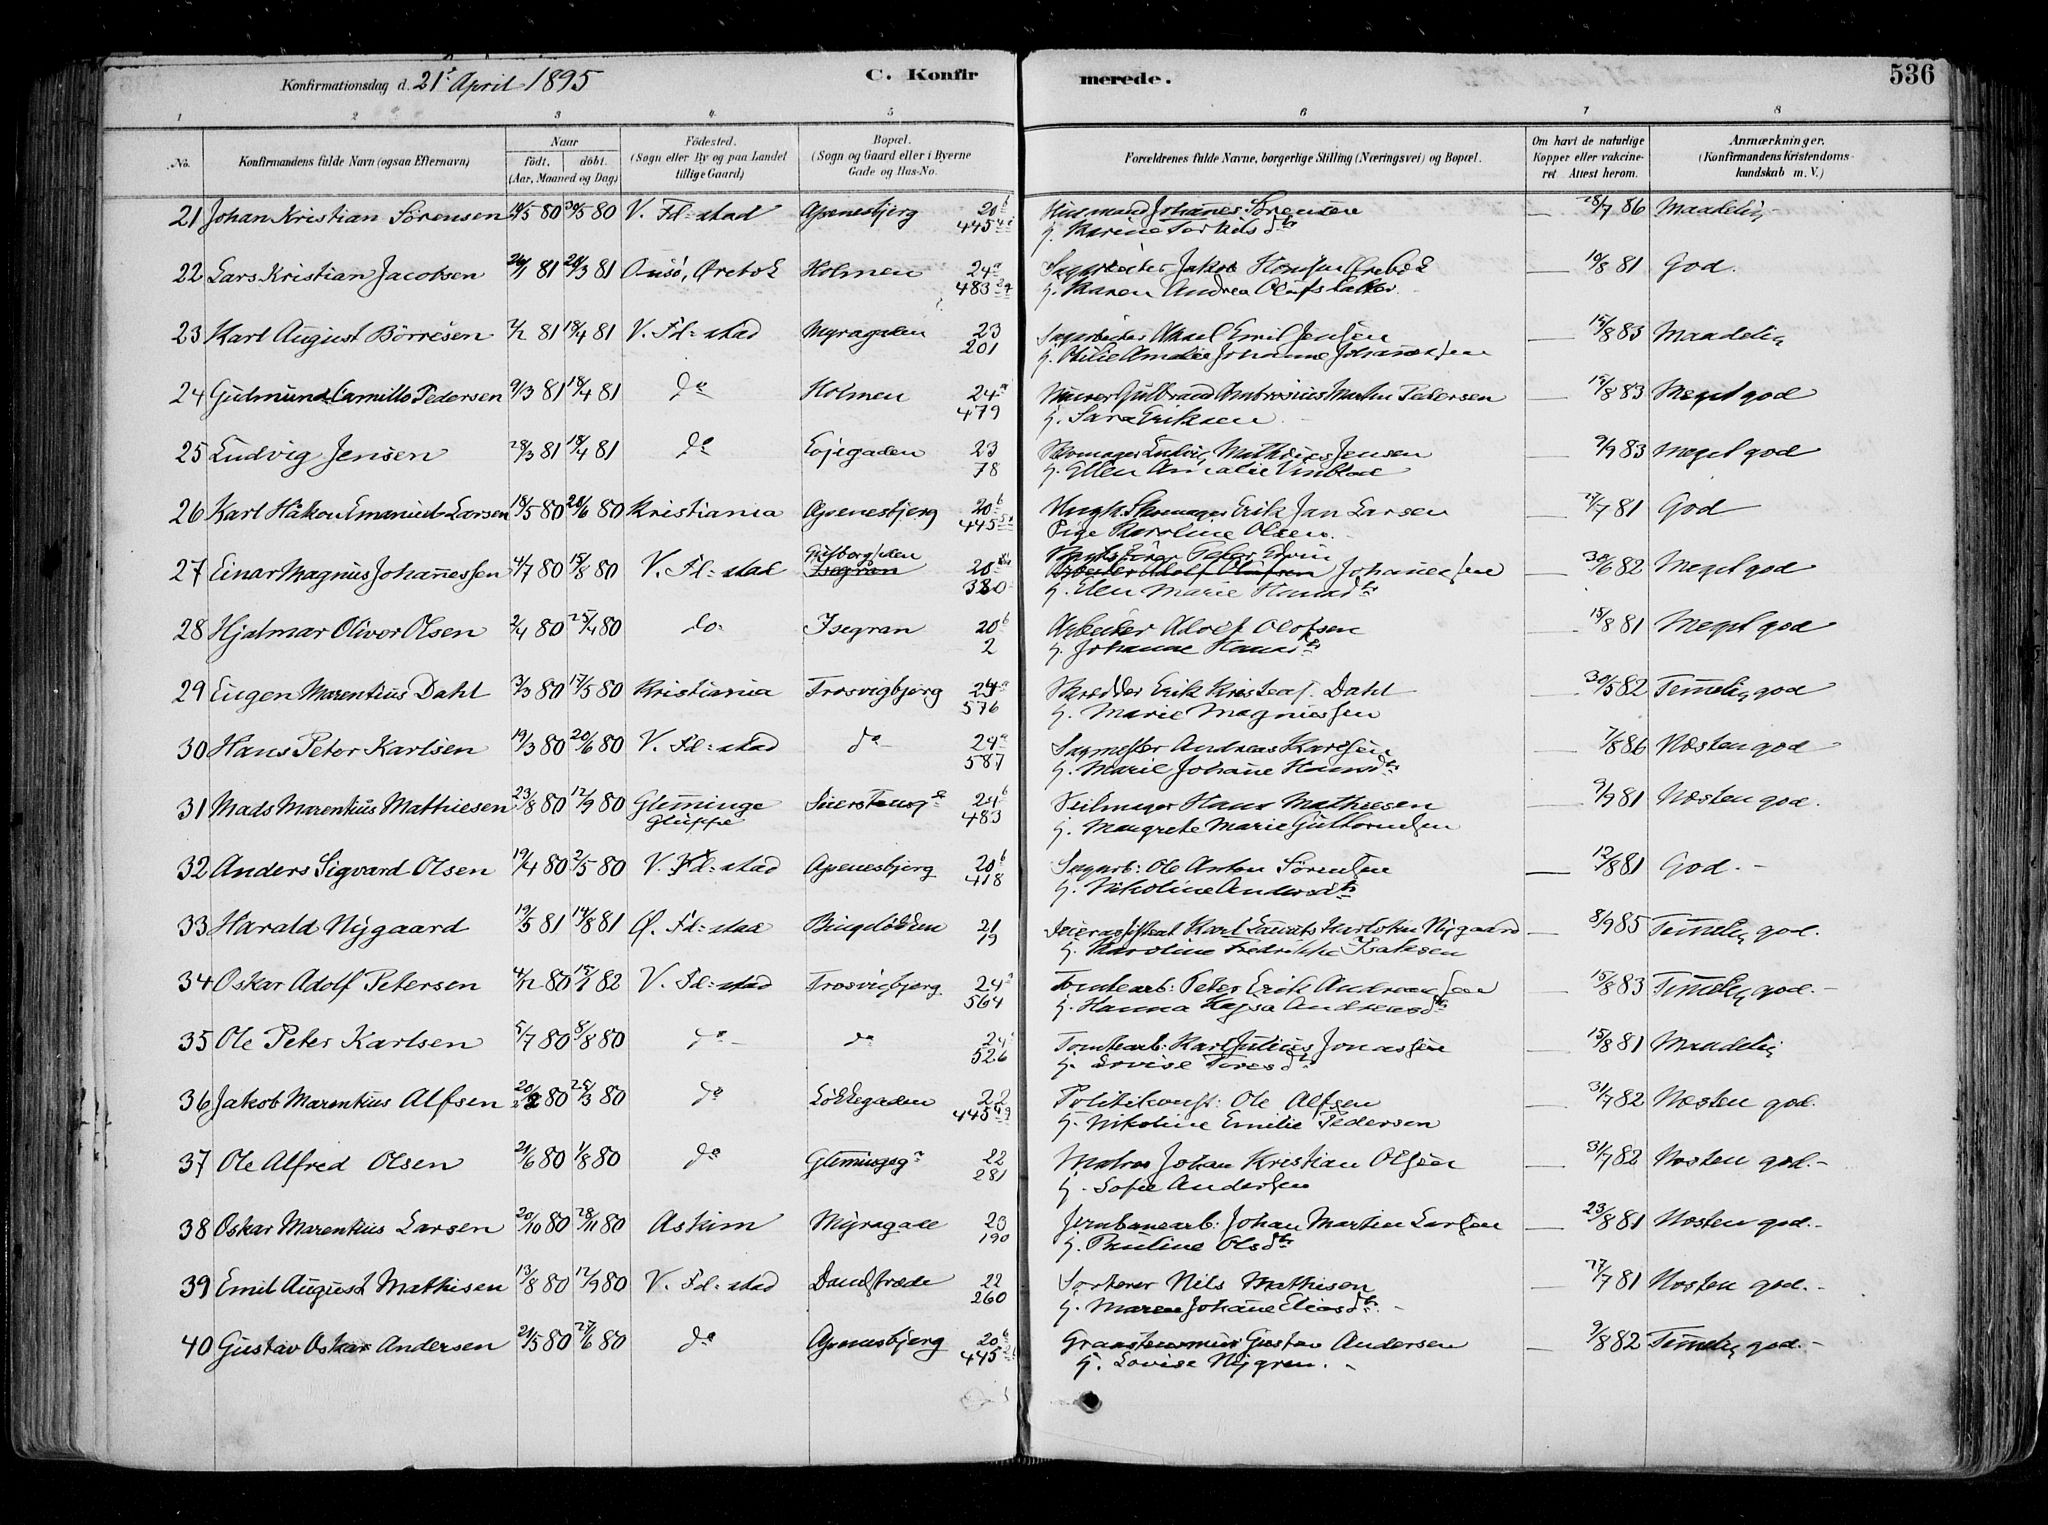 Konfirmationsdag d. 21' April 1895
C. Konfirmerede.
536
1 2 3 4 5 6 7 8
No.
Konfirmandens fulde Navn (ogsaa Efternavn)
Naar födt. döbt. (Aar, Maaned og Dag)
Födested. (Sogn eller By og paa Landet tillige Gaard)
Bopæl. (Sogn og Gaard eller i Byerne Gade og Hus-No.
Forældrenes fulde Navne, borgerlige Stilling (Næringsvei) og Bopæl.
Om havt de naturlige Kopper eller vakcineret Attest herom.
Anmærkninger. (Konfirmandens Kristendomskundskab m. V.)
21 Johan Kristian Sörensen 80 30/5 80 V. Fd:stad Apenesbjerg 20b Husmand Johannes Sörensen — 28/7 86 Maadelig
445 G. Karine Torkilsdtr
22 Lars Kristian Jacobsen 81 81 Onsö, Örebæk Holmen 24a Jakob Örebæk — 19/8 81 God.
483 G. Karen Andrea Olufsdatter
23 Karl August Börresen 81 18/4 81 V. Fd:stad Myragaden 23 Emil Jensen — 15/8 83 Maadelig
201 G. Otilie Amalie Johanne Johannessen
24 Gudmund Camillo Pedersen 9/3 81 18/4 81 do Holmen 24a Murer Gulbrand Ambrosius Martin Petersen — 15/8 83 Meget god
479 G. Sara Eriksen
25 Ludvig Jensen 28/3 81 18/4 81 do Eojegaden 23 Skomager Ludvig Mathias Jensen — 9/9 83 Meget god
78 G. Ellen Amalie
26 Karl Håkon Emanuel Larsen 18/5 80 20/6 80 Kristiania Apenesbjerg 20b Ungk. Skomager Erik Jan Larsen — 27/7 81 God
445 Pige Karoline Olsen
27 Einar Magnus Johannessen 4/7 80 15/8 80 V. Fd:stad Isegran 20 Peter Edvin Arbeider Adolf Olufsen Johannessen — 30/6 82 Meget god
380 G. Elen Marie Hansdtr
28 Hjalmar Olivor Olsen 2/4 80 25/4 80 do Isegran 20b Arbeider Adolf Olofsen — 15/8 81 Meget god
2 G. Johanne Hansdtr
29 Eugen Marentius Dahl 3/3 80 17/5 80 Kristiania Trosvigbjerg 24a Skredder Erik Kristeaf. Dahl — 30/5 82 Temelig god
576 G. Marie Magniessen
30 Hans Peter Karlsen 19/3 80 20/6 80 V. Fd:stad do 24a Sagmester Andreas Karlsen — 7/8 86 Næsten god
587 G. Marie Johanne Hansdtr
31 Mads Marentius Mathiesen 23/8 80 12/9 80 Glemminge 24b Seilmager Hans Mathiesen — 9/9 81 Næsten god.
Gluppe 483 G. Maugrete Marie Guttormsen
32 Anders Sigvard Olsen 19/4 80 2/5 80 V. Fd:stad Apenesbjerg 20b Sagarb: Ole Anton Sörensen — 12/8 81 God.
418 G. Nikoline Andersdtr
33 Harald Nygaard 19/5 81 14/8 81 Ö. Fd:stad Bingelökken 21 Karl Laurits Nygaard — 8/9 85 Temelig god.
19 G. Karoline Fredrikke Isaksen
34 Oskar Adolf Petersen 4/12 80 82 V. Fd:stad Trosvigbjerg 24a Tomtearb: Peter Erik Andreassen — 15/8 83 Temelig god.
564 G. Hanna Kajsa Andreasdtr
35 Ole Peter Karlsen 5/7 80 8/8 80 do do 24a Tomtearb: Karl Julius Jonassen — 15/8 81 Maadelig
526 G. Lovise Toresdtr
36 Jakob Marentius Alfsen 20/2 80 25/3 80 do Lökkegaden 22 Politikonst: Ole Alfsen — 31/7 82 Næsten god.
445 G. Nikoline Emilie Pedersen
37 Ole Alfred Olsen 21/6 80 1/8 80 do Glemingeg 22 Matros Johan Kristian Olsen — 31/7 82 Næsten god.
281 G. Sofie Andersen
38 Oskar Marentius Larsen 20/10 80 28/11 80 Askim Myragade 23 Jernbanearb: Johan Martin Larsen — 23/8 81 Næsten god.
190 G. Pauline Olsdtr
39 Emil August Mathisen 13/8 80 12/9 80 V. Fd:stad Damstræde 22 Sorterer Nils Mathisen — 27/7 81 Næsten god.
260 G. Maren Johanne Eliasdtr.
40 Gustav Oskar Andersen 21/5 80 27/6 80 do Apenesbjerg 20b Gustav Andersen — 9/8 82 Temelig god.
445 G. Lovise Nygren.